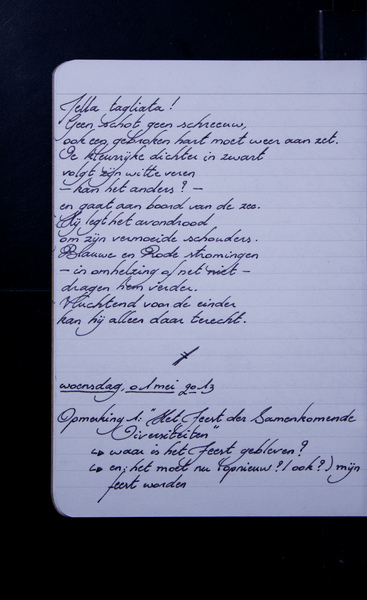 Jella tagliata!
Geen schot, geen schreeuw,
ook een gebroken hart moet weer aan zet.
De kleurrijke dichter in zwart
volgt zijn witte veren
– kan het anders? –
en gaat aan boord van de zee.
Hij legt het avondrood
om zijn vermoeide schouders.
Blauwe en Rode stromingen
– in omhelzing of net niet –
dragen hem verder.
Vluchtend voor de einder
kan hij alleen daar terecht.
woensdag, 01 mei 2013
Opmerking 1: "Het Feest der Samenkomende
Diversiteiten"
↳ waar is het Feest gebleven?
↳ en: het moet nu (opnieuw?/ook?) mijn
feest worden